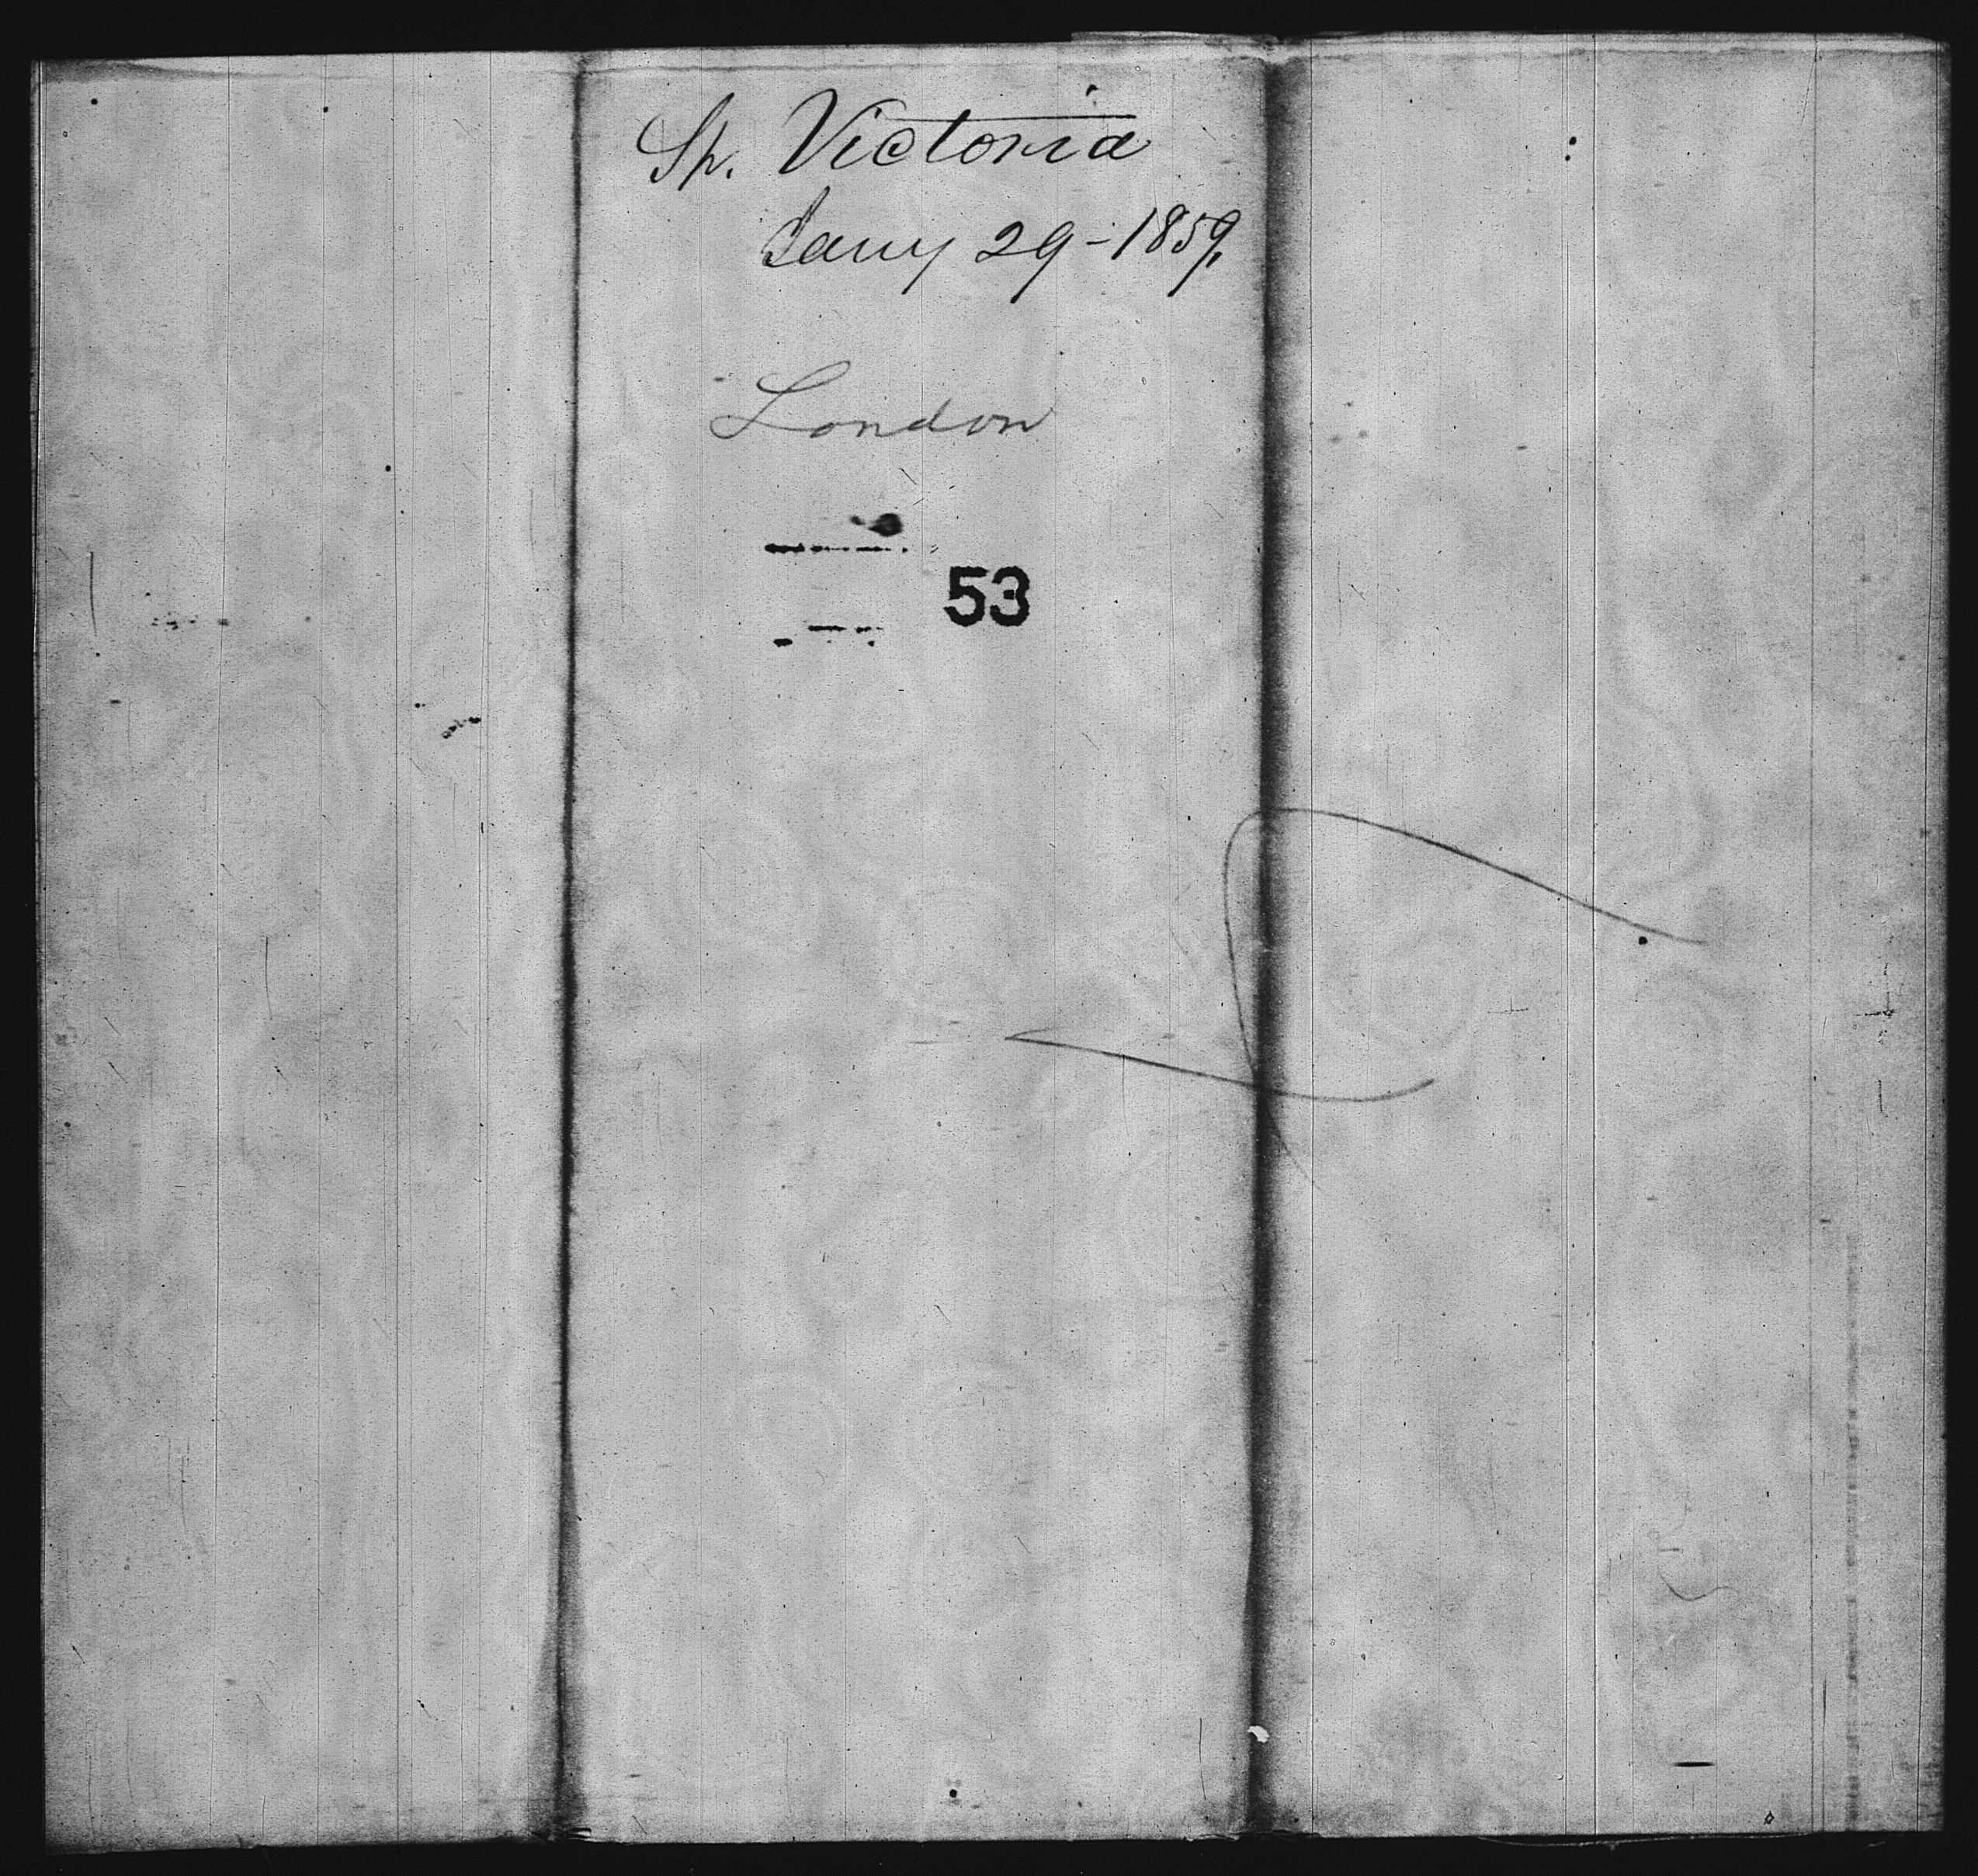 Sh. Victoria
Jany 29-1859,
London
53